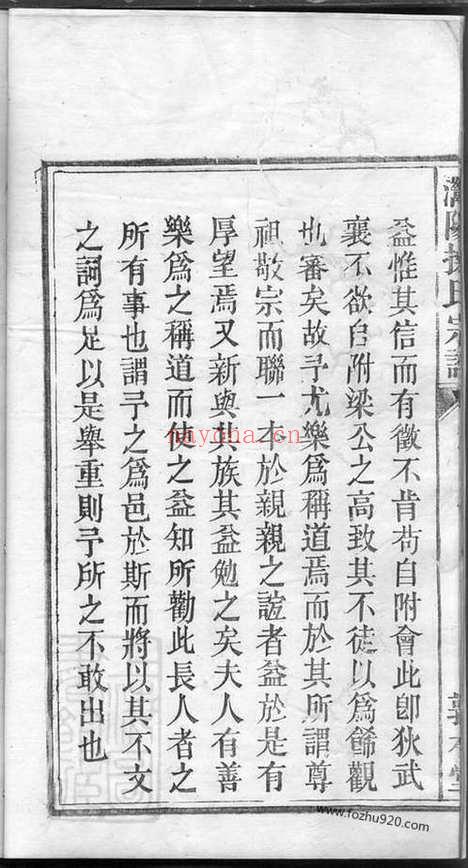 益惟其信而有徵不肯苟自附會此卽狄武
襄不欲自附梁公之高致其不徒以爲餙觀
也審矣故予尤樂爲稱道焉而於其所謂尊
祖敬宗而聯一本於親親之誼者益於是有
厚望焉又新與其族其益勉之矣夫人有善
樂爲之稱道而使之益知所勸此長人者之
所有事也謂予之爲邑於斯而將以其不文
之詞爲足以是舉重則予所之不敢出也
nayona.cn
www.fozhu920.com